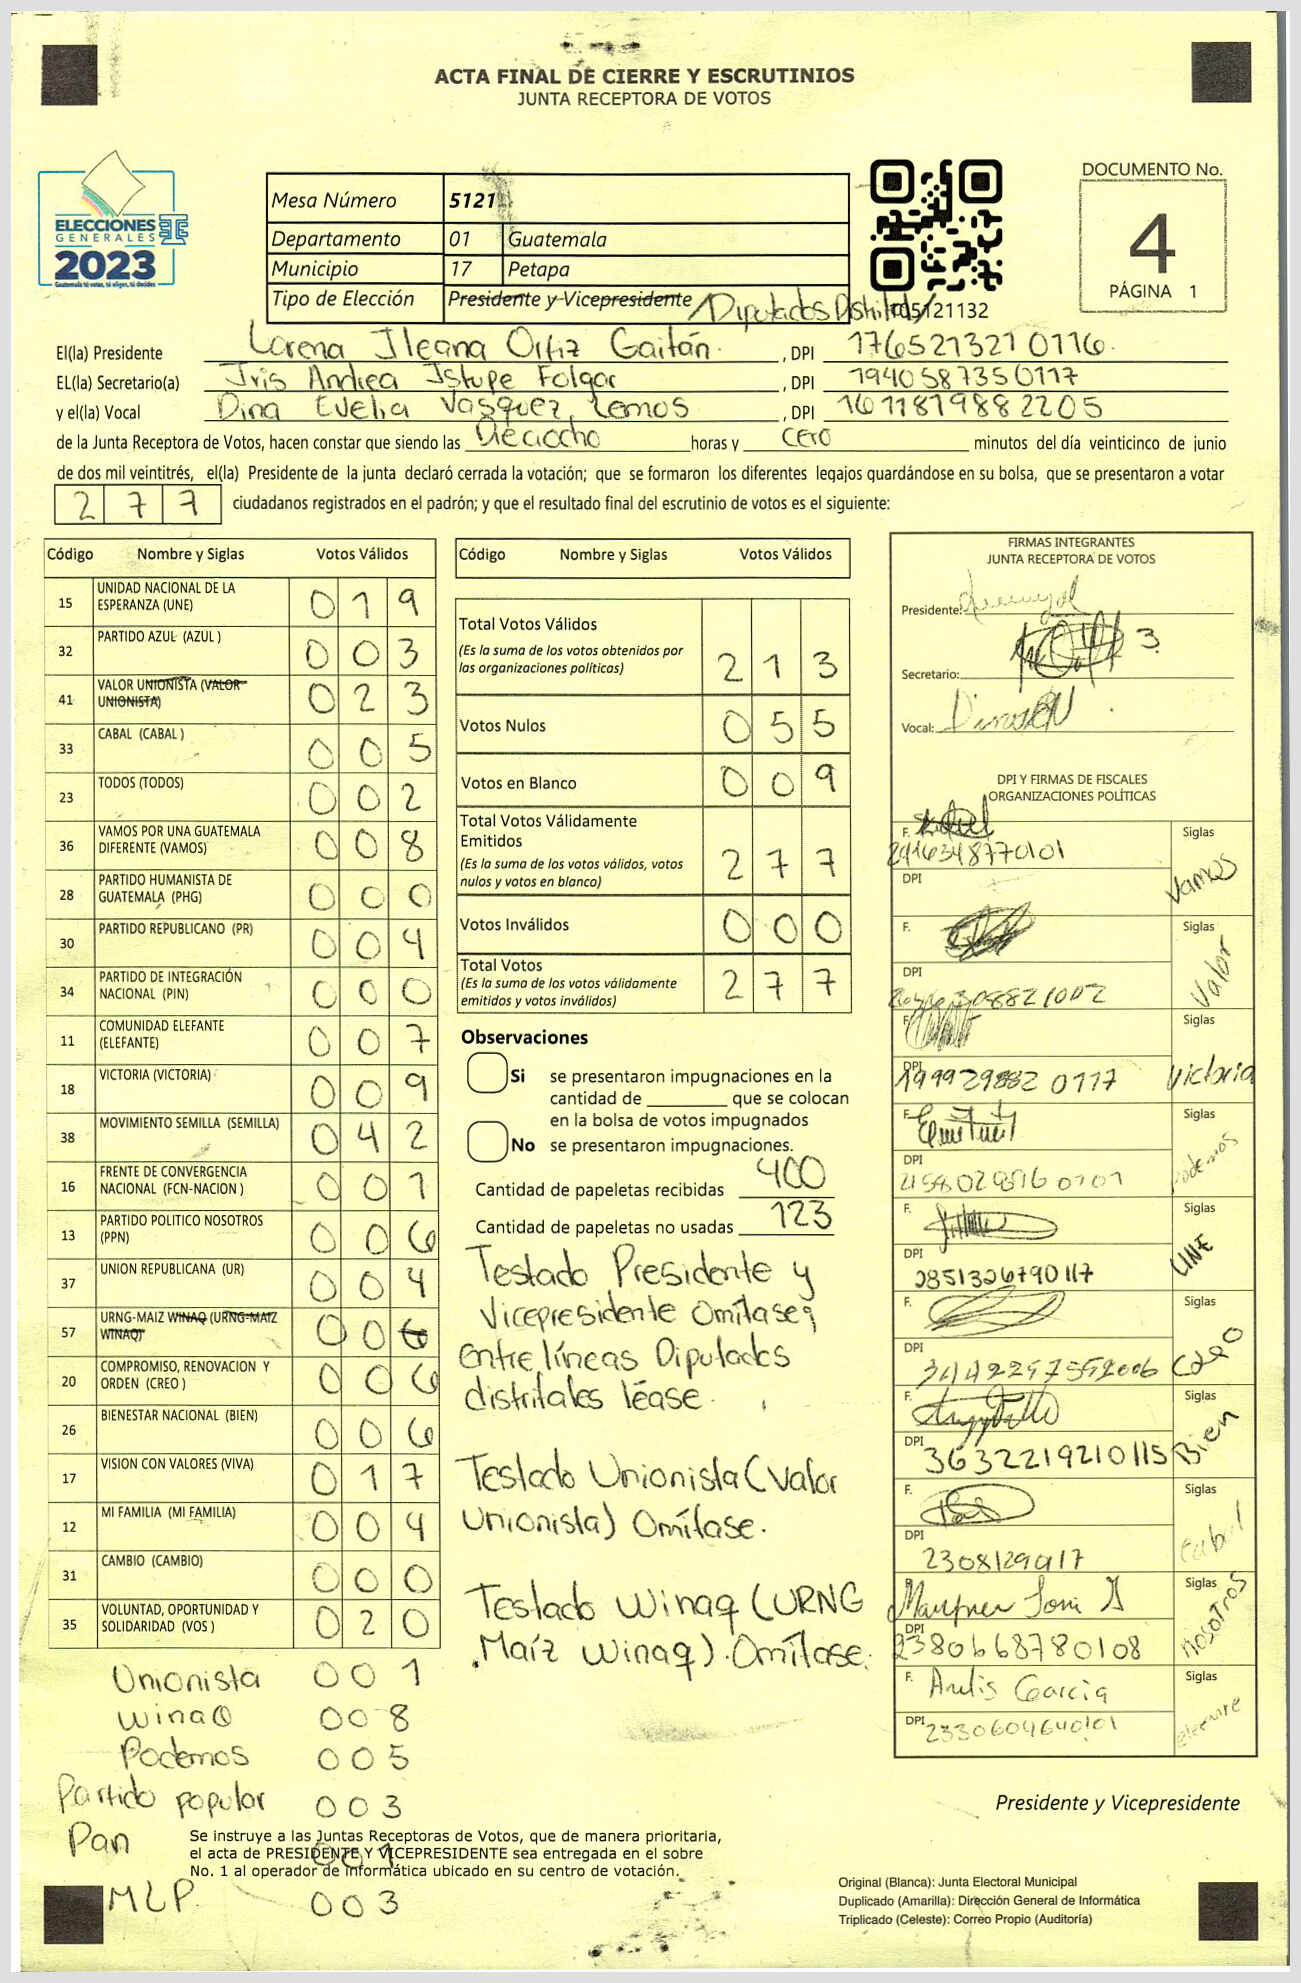 ACTA FINAL DE CIERRE Y ESCRUTINIOS
JUNTA RECEPTORA DE VOTOS
ELECCIONES
GENERALES
2023
Guatemala tú votas, tú eliges, tú decides
Mesa Número 5121
Departamento 01 Guatemala
Municipio 17 Petapa
Tipo de Elección Presidente y Vicepresidente / Diputados Distritales
T05121132
DOCUMENTO No.
4
PÁGINA 1
El(la) Presidente Lorena Ileana Ortiz Gaitán , DPI 1765213210116
EL(la) Secretario(a) Iris Andrea Istupe Folgar , DPI 1940587350117
y el(la) Vocal Dina Evelia Vasquez Lemos , DPI 1611819882205
de la Junta Receptora de Votos, hacen constar que siendo las Dieciocho horas y cero minutos del día veinticinco de junio
de dos mil veintitrés, el(la) Presidente de la junta declaró cerrada la votación; que se formaron los diferentes legajos guardándose en su bolsa, que se presentaron a votar
2 7 7 ciudadanos registrados en el padrón; y que el resultado final del escrutinio de votos es el siguiente:
Código Nombre y Siglas Votos Válidos
15 UNIDAD NACIONAL DE LA ESPERANZA (UNE) 0 1 9
32 PARTIDO AZUL (AZUL ) 0 0 3
41 VALOR UNIONISTA (VALOR UNIONISTA) 0 2 3
33 CABAL (CABAL ) 0 0 5
23 TODOS (TODOS) 0 0 2
36 VAMOS POR UNA GUATEMALA DIFERENTE (VAMOS) 0 0 8
28 PARTIDO HUMANISTA DE GUATEMALA (PHG) 0 0 0
30 PARTIDO REPUBLICANO (PR) 0 0 4
34 PARTIDO DE INTEGRACIÓN NACIONAL (PIN) 0 0 0
11 COMUNIDAD ELEFANTE (ELEFANTE) 0 0 7
18 VICTORIA (VICTORIA) 0 0 9
38 MOVIMIENTO SEMILLA (SEMILLA) 0 4 2
16 FRENTE DE CONVERGENCIA NACIONAL (FCN-NACION ) 0 0 1
13 PARTIDO POLITICO NOSOTROS (PPN) 0 0 6
37 UNION REPUBLICANA (UR) 0 0 4
57 URNG-MAIZ WINAQ (URNG-MAIZ WINAQ) 0 0 6
20 COMPROMISO, RENOVACION Y ORDEN (CREO ) 0 0 6
26 BIENESTAR NACIONAL (BIEN) 0 0 6
17 VISION CON VALORES (VIVA) 0 1 7
12 MI FAMILIA (MI FAMILIA) 0 0 4
31 CAMBIO (CAMBIO) 0 0 0
35 VOLUNTAD, OPORTUNIDAD Y SOLIDARIDAD (VOS ) 0 2 0
Unionista 0 0 1
WinaQ 0 0 8
Podemos 0 0 5
Partido popular 0 0 3
Pan 0 0 1
MLP 0 0 3
Código Nombre y Siglas Votos Válidos
Total Votos Válidos
(Es la suma de los votos obtenidos por
las organizaciones políticas) 2 1 3
Votos Nulos 0 5 5
Votos en Blanco 0 0 9
Total Votos Válidamente
Emitidos
(Es la suma de los votos válidos, votos
nulos y votos en blanco) 2 7 7
Votos Inválidos 0 0 0
Total Votos
(Es la suma de los votos válidamente
emitidos y votos inválidos) 2 7 7
Observaciones
Si se presentaron impugnaciones en la
cantidad de ________ que se colocan
en la bolsa de votos impugnados
No se presentaron impugnaciones.
Cantidad de papeletas recibidas 400
Cantidad de papeletas no usadas 123
Testado Presidente y
Vicepresidente Omítase;
Entre líneas Diputados
distritales léase.
Testado Unionista (Valor
Unionista) Omítase.
Testado Winaq (URNG
Maíz Winaq). Omítase.
FIRMAS INTEGRANTES
JUNTA RECEPTORA DE VOTOS
Presidente:
Secretario:
Vocal:
DPI Y FIRMAS DE FISCALES
ORGANIZACIONES POLÍTICAS
F. Siglas Vamos
DPI
F. Siglas Valor
DPI
F. Siglas Victoria
DPI 199929882 0117
F. Siglas Podemos
DPI
F. Siglas UNE
DPI 2851326790117
F. Siglas Creo
DPI
F. Siglas Bien
DPI 3632219210115
F. Siglas Cabal
DPI
F. Siglas Nosotros
DPI 2380668780108
F. Arelis Garcia Siglas elefante
DPI 2330604640101
Presidente y Vicepresidente
Se instruye a las Juntas Receptoras de Votos, que de manera prioritaria,
el acta de PRESIDENTE Y VICEPRESIDENTE sea entregada en el sobre
No. 1 al operador de informática ubicado en su centro de votación.
Original (Blanca): Junta Electoral Municipal
Duplicado (Amarilla): Dirección General de Informática
Triplicado (Celeste): Correo Propio (Auditoría)